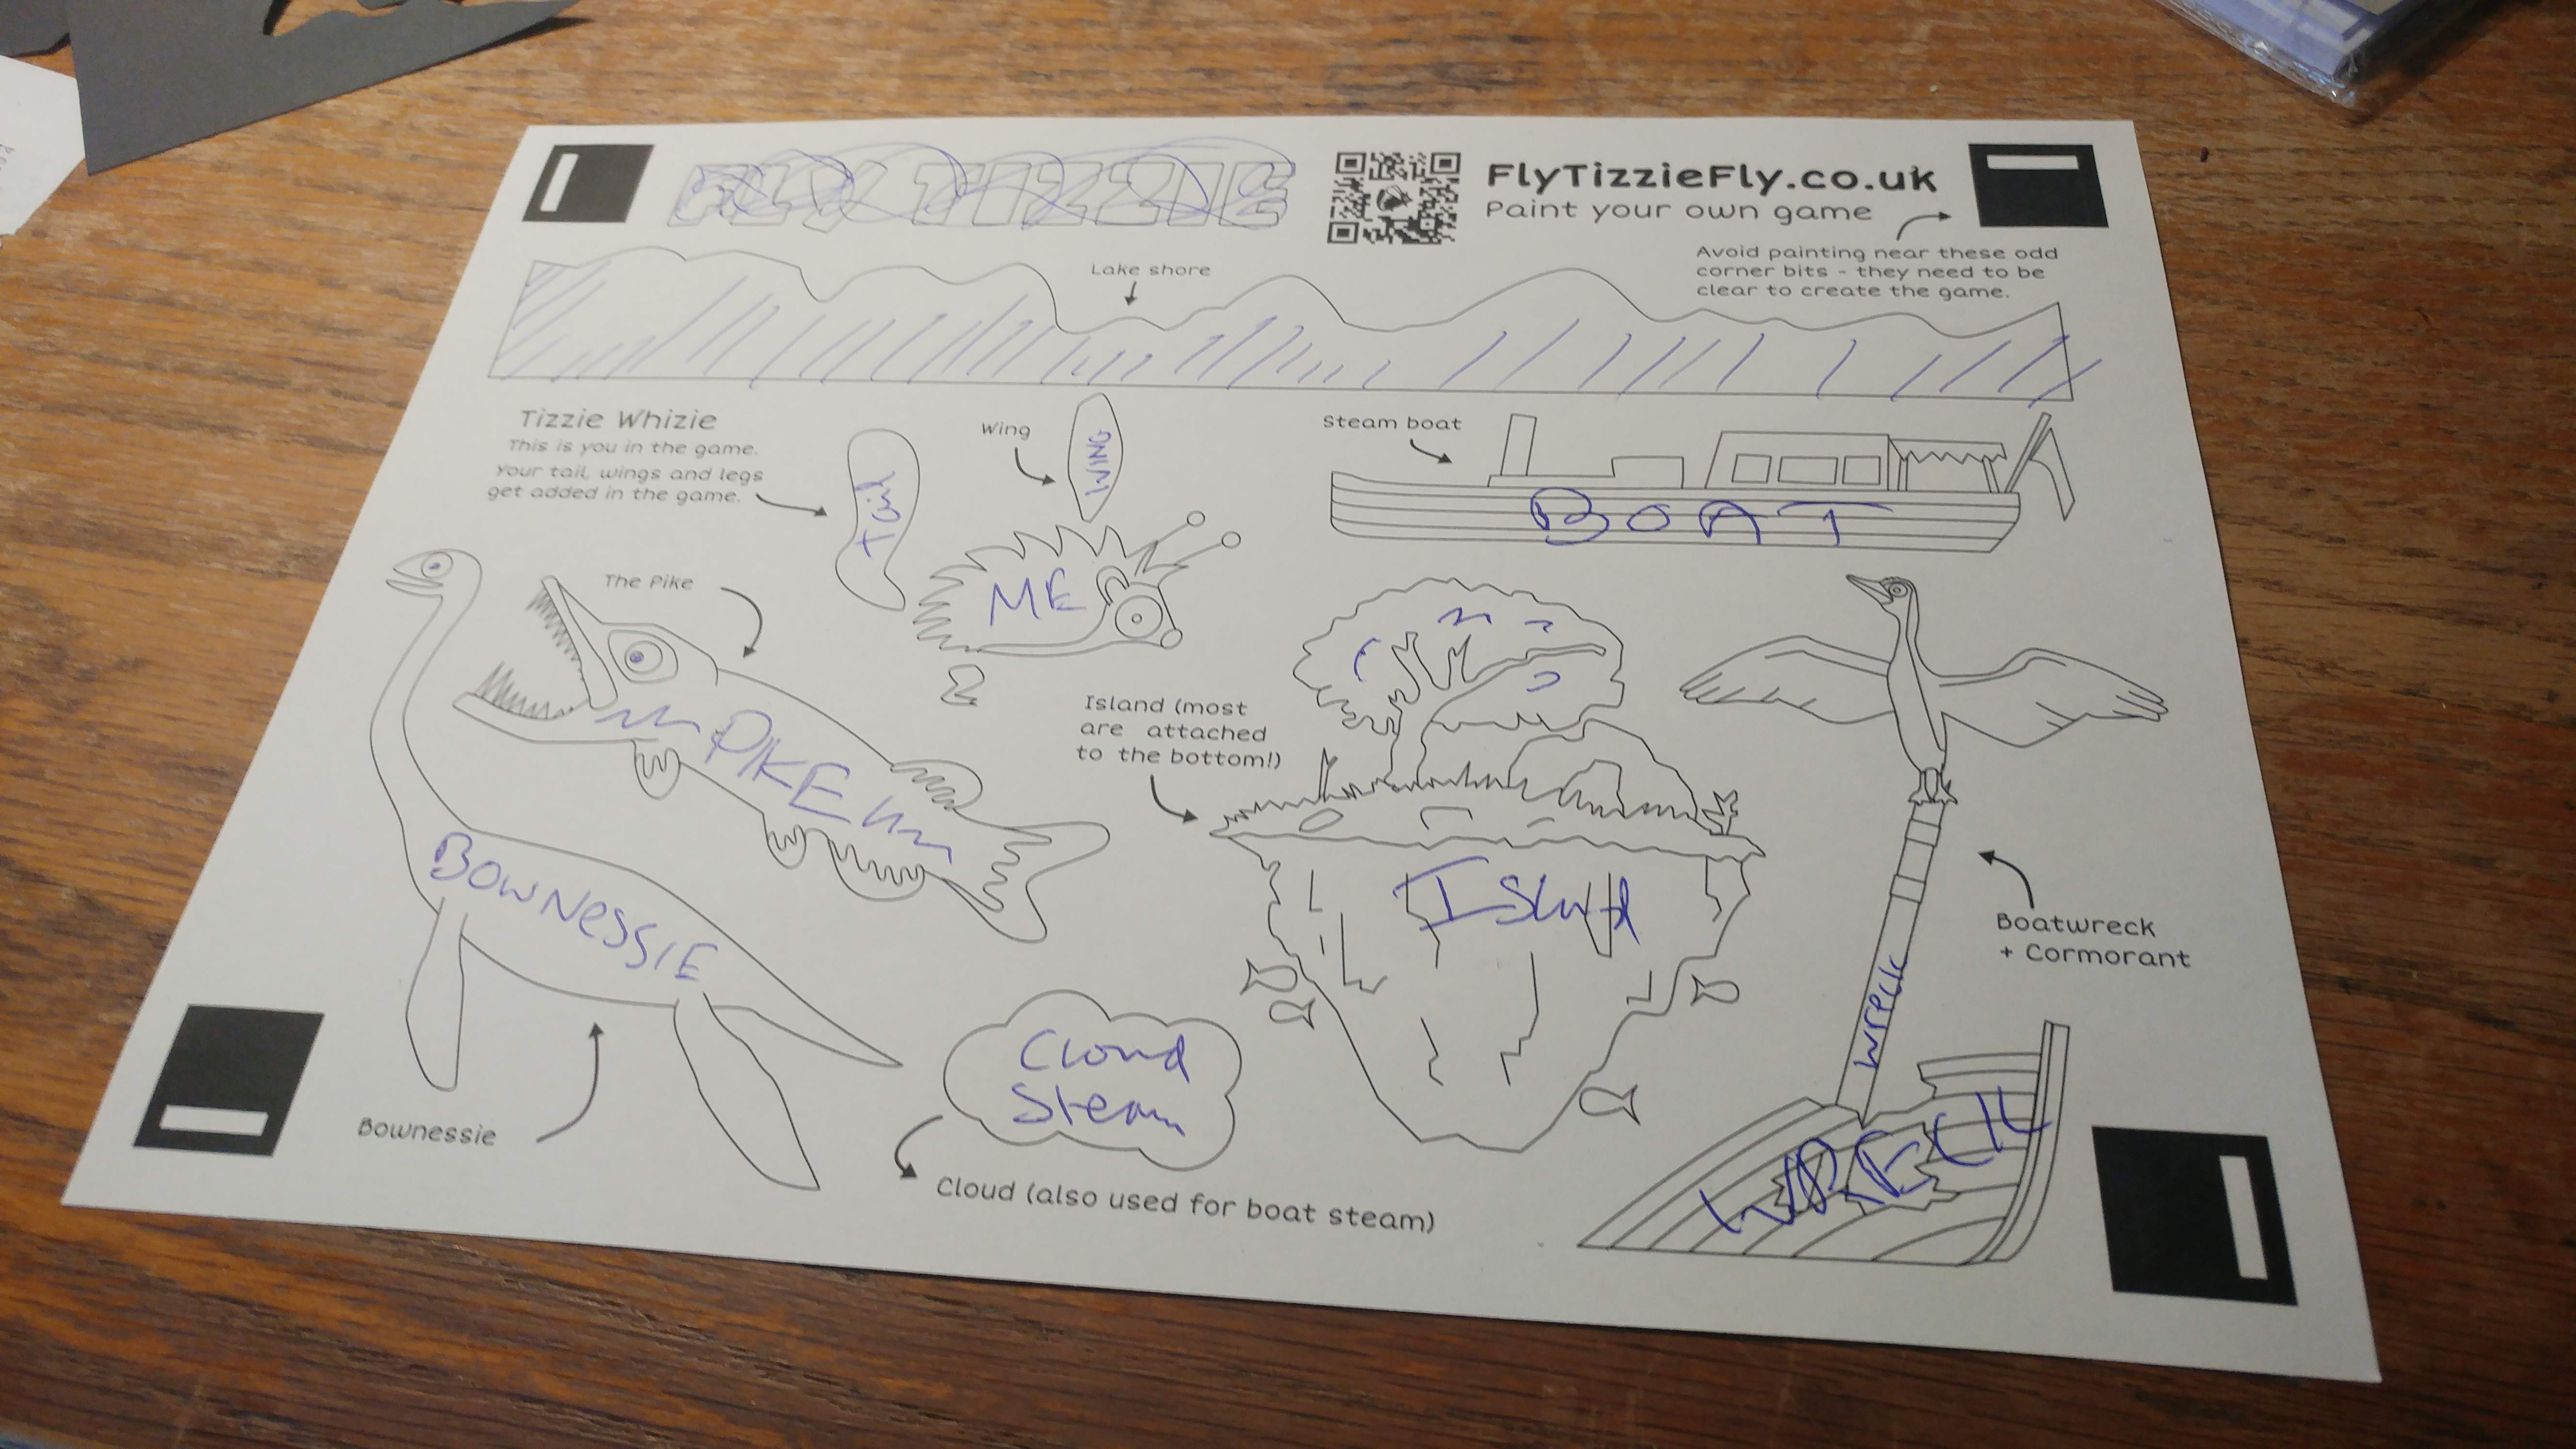 FLY TIZZIE
FlyTizzieFly.co.uk
Paint your own game
Avoid painting near these odd
corner bits - they need to be
clear to create the game.
Lake shore
Tizzie Whizie
This is you in the game.
Your tail, wings and legs
get added in the game.
Tail
Wing
WING
ME
Steam boat
BOAT
The Pike
PIKE
Island (most
are attached
to the bottom!)
Island
Boatwreck
+ Cormorant
wreck
WRECK
BOWNESSIE
Bownessie
Cloud
Steam
Cloud (also used for boat steam)